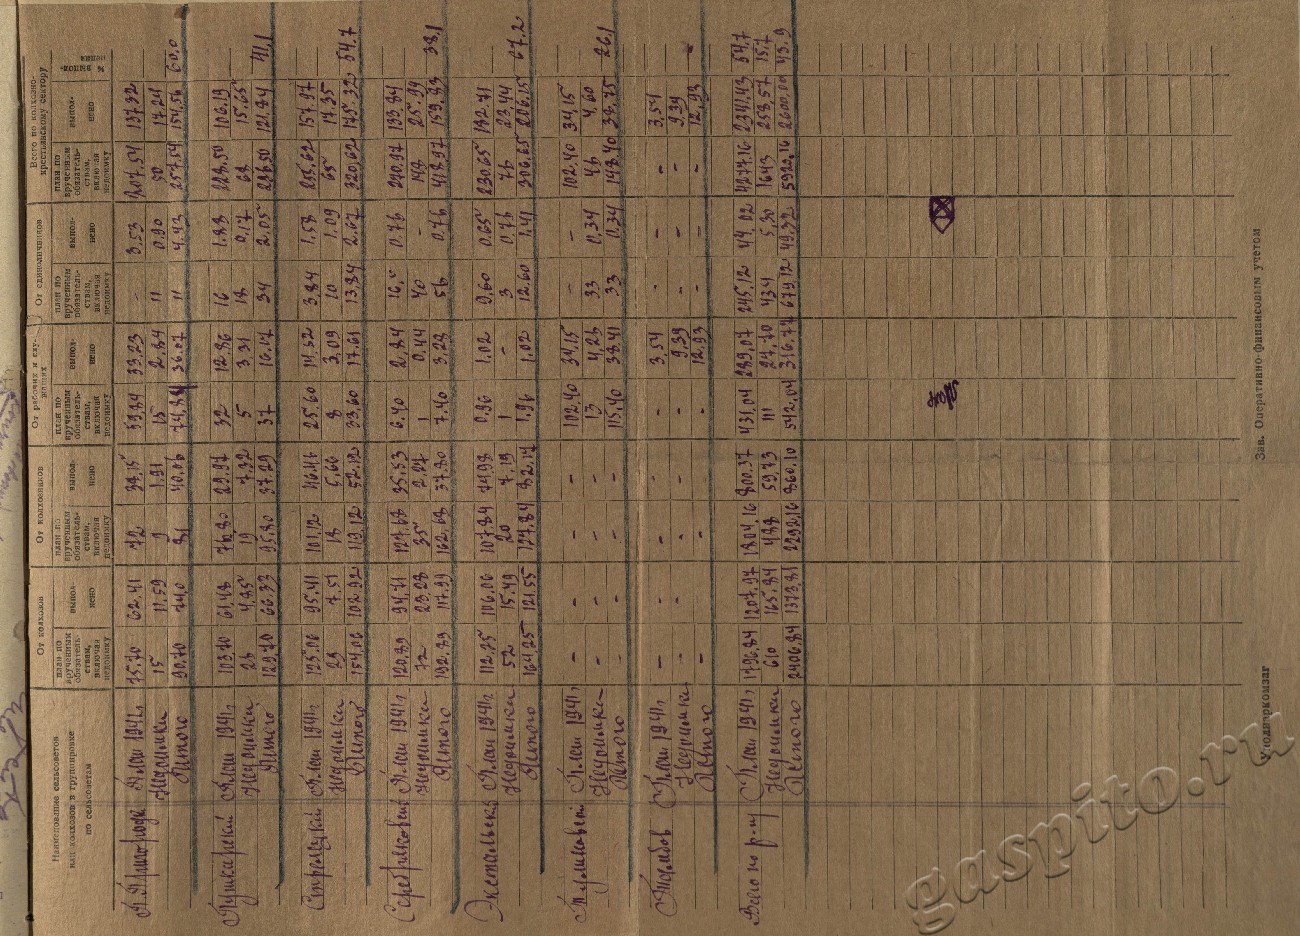 Наименование сельсоветов
или колхозов в группировке
по сельсоветам
От колхозов
план по врученным обязательствам, включая недоимку
выполнено
От колхозников
план по врученным обязательствам, включая недоимку
выполнено
От рабочих и служащих
план по врученным обязательствам, включая недоимку
выполнено
От единоличников
план по врученным обязательствам, включая недоимку
выполнено
Всего по колхозно-крестьянскому сектору
план по врученным обязательствам, включая недоимку
выполнено
План 1941г. 75.70 62.41 72 38.15 59.84 33.23 - 3.53 207.54 137.32
Недоимки 15 11.59 9 1.91 15 2.84 11 0.90 50 17.24
Итого 90.70 74.0 81 40.06 74.84 36.07 11 4.43 257.54 154.56 60.0
Пушкарский План 1941г. 113.70 61.48 76.80 29.97 32 12.86 16 1.88 106.19
Недоимки 4.85 19 7.32 5 3.31 18 0.17 15.65
Итого 66.33 95.80 37.29 37 16.17 34 2.05 121.84 41.1
Стрелецкий План 1941г. 125.06 95.41 101.12 46.46 25.60 14.52 3.84 1.58 255.62 157.97
Недоимки 7.51 18 5.66 8 3.09 10 1.09 65 17.35
Итого 102.92 119.12 52.12 33.60 17.61 13.84 2.67 320.62 175.32 54.7
План 1941г. 120.89 94.71 127.68 35.53 6.40 2.84 0.76 133.84
Недоимки 72 23.28 35 2.27 1 0.44 40 - 148 25.99
Итого 192.89 117.99 162.68 37.80 7.40 3.28 56 0.76 418.97 159.83 38.1
Экстальский План 1941г. 112.25 106.06 107.84 74.98 0.96 1.02 9.60 0.65 230.65 182.71
Недоимки 52 15.49 20 7.19 1 - 3 0.76 76 23.44
Итого 164.25 121.55 127.84 82.17 1.96 1.02 12.60 1.41 306.65 206.15 67.2
План 1941г. - - - - 102.40 34.15 - - 102.40 34.15
Недоимки - - - - 13 4.26 33 0.34 46 4.60
Итого - - - - 115.40 38.41 33 0.34 148.40 38.75 26.1
Тамбов План 1941г. - - - - - 3.54 - - - 3.54
Недоимки - - - - - 9.39 - - - 9.39
Итого - - - - - 12.93 - - - 12.93 -
Всего по р-ну План 1941г. 1796.84 1207.97 1804.16 800.37 431.04 289.07 245.12 44.02 4277.16 2341.43 54.7
Недоимки 610 165.84 488 59.73 111 27.70 434 5.30 1643 258.57 15.7
Итого 2406.84 1373.81 2292.16 860.10 542.04 316.77 679.12 49.32 5920.16 2600.00 43.9
Уполнаркомзаг
Зав. Оперативно-финансовым учетом
gaspito.ru